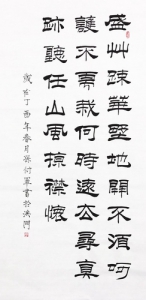 盛艸疎華堅地開不須呵
護不需栽何時遠去尋真
跡聽任山風掠襟懷
歲在丁酉年春月孫衍軍書於